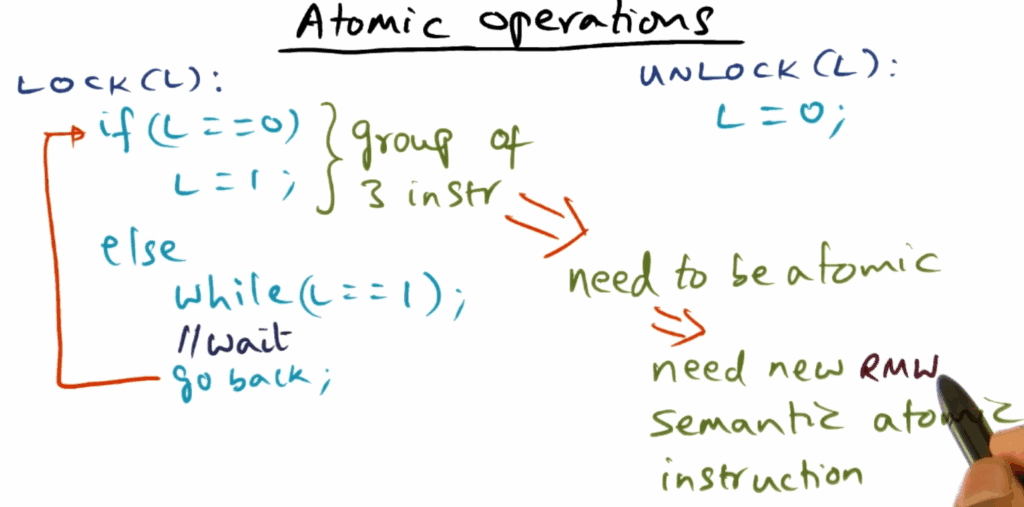 Atomic operations
LOCK(L):
if (L==0)
L=1;
} group of
3 instr
else
while(L==1);
//wait
go back;
UNLOCK(L):
L=0;
need to be atomic
need new RMW
semantic atomic
instruction